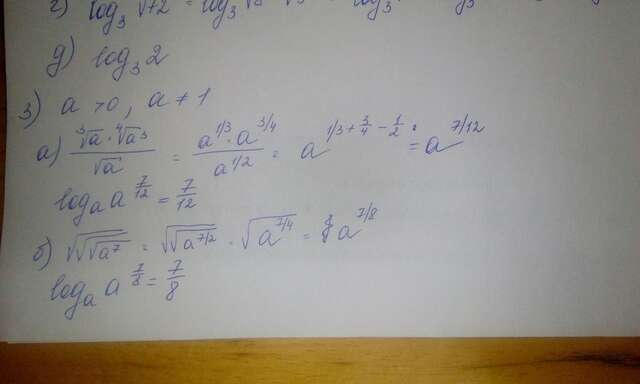 г) log₃ √72 =
д) log₃ 2
3) a > 0, a ≠ 1
а) ∛a · ∜a³ / √a = a^{1/3} · a^{3/4} / a^{1/2} = a^{1/3 + 3/4 - 1/2} = a^{7/12}
logₐ a^{7/12} = 7/12
б) √√√a⁷ = √√a^{7/2} = √a^{7/4} = a^{7/8}
logₐ a^{7/8} = 7/8